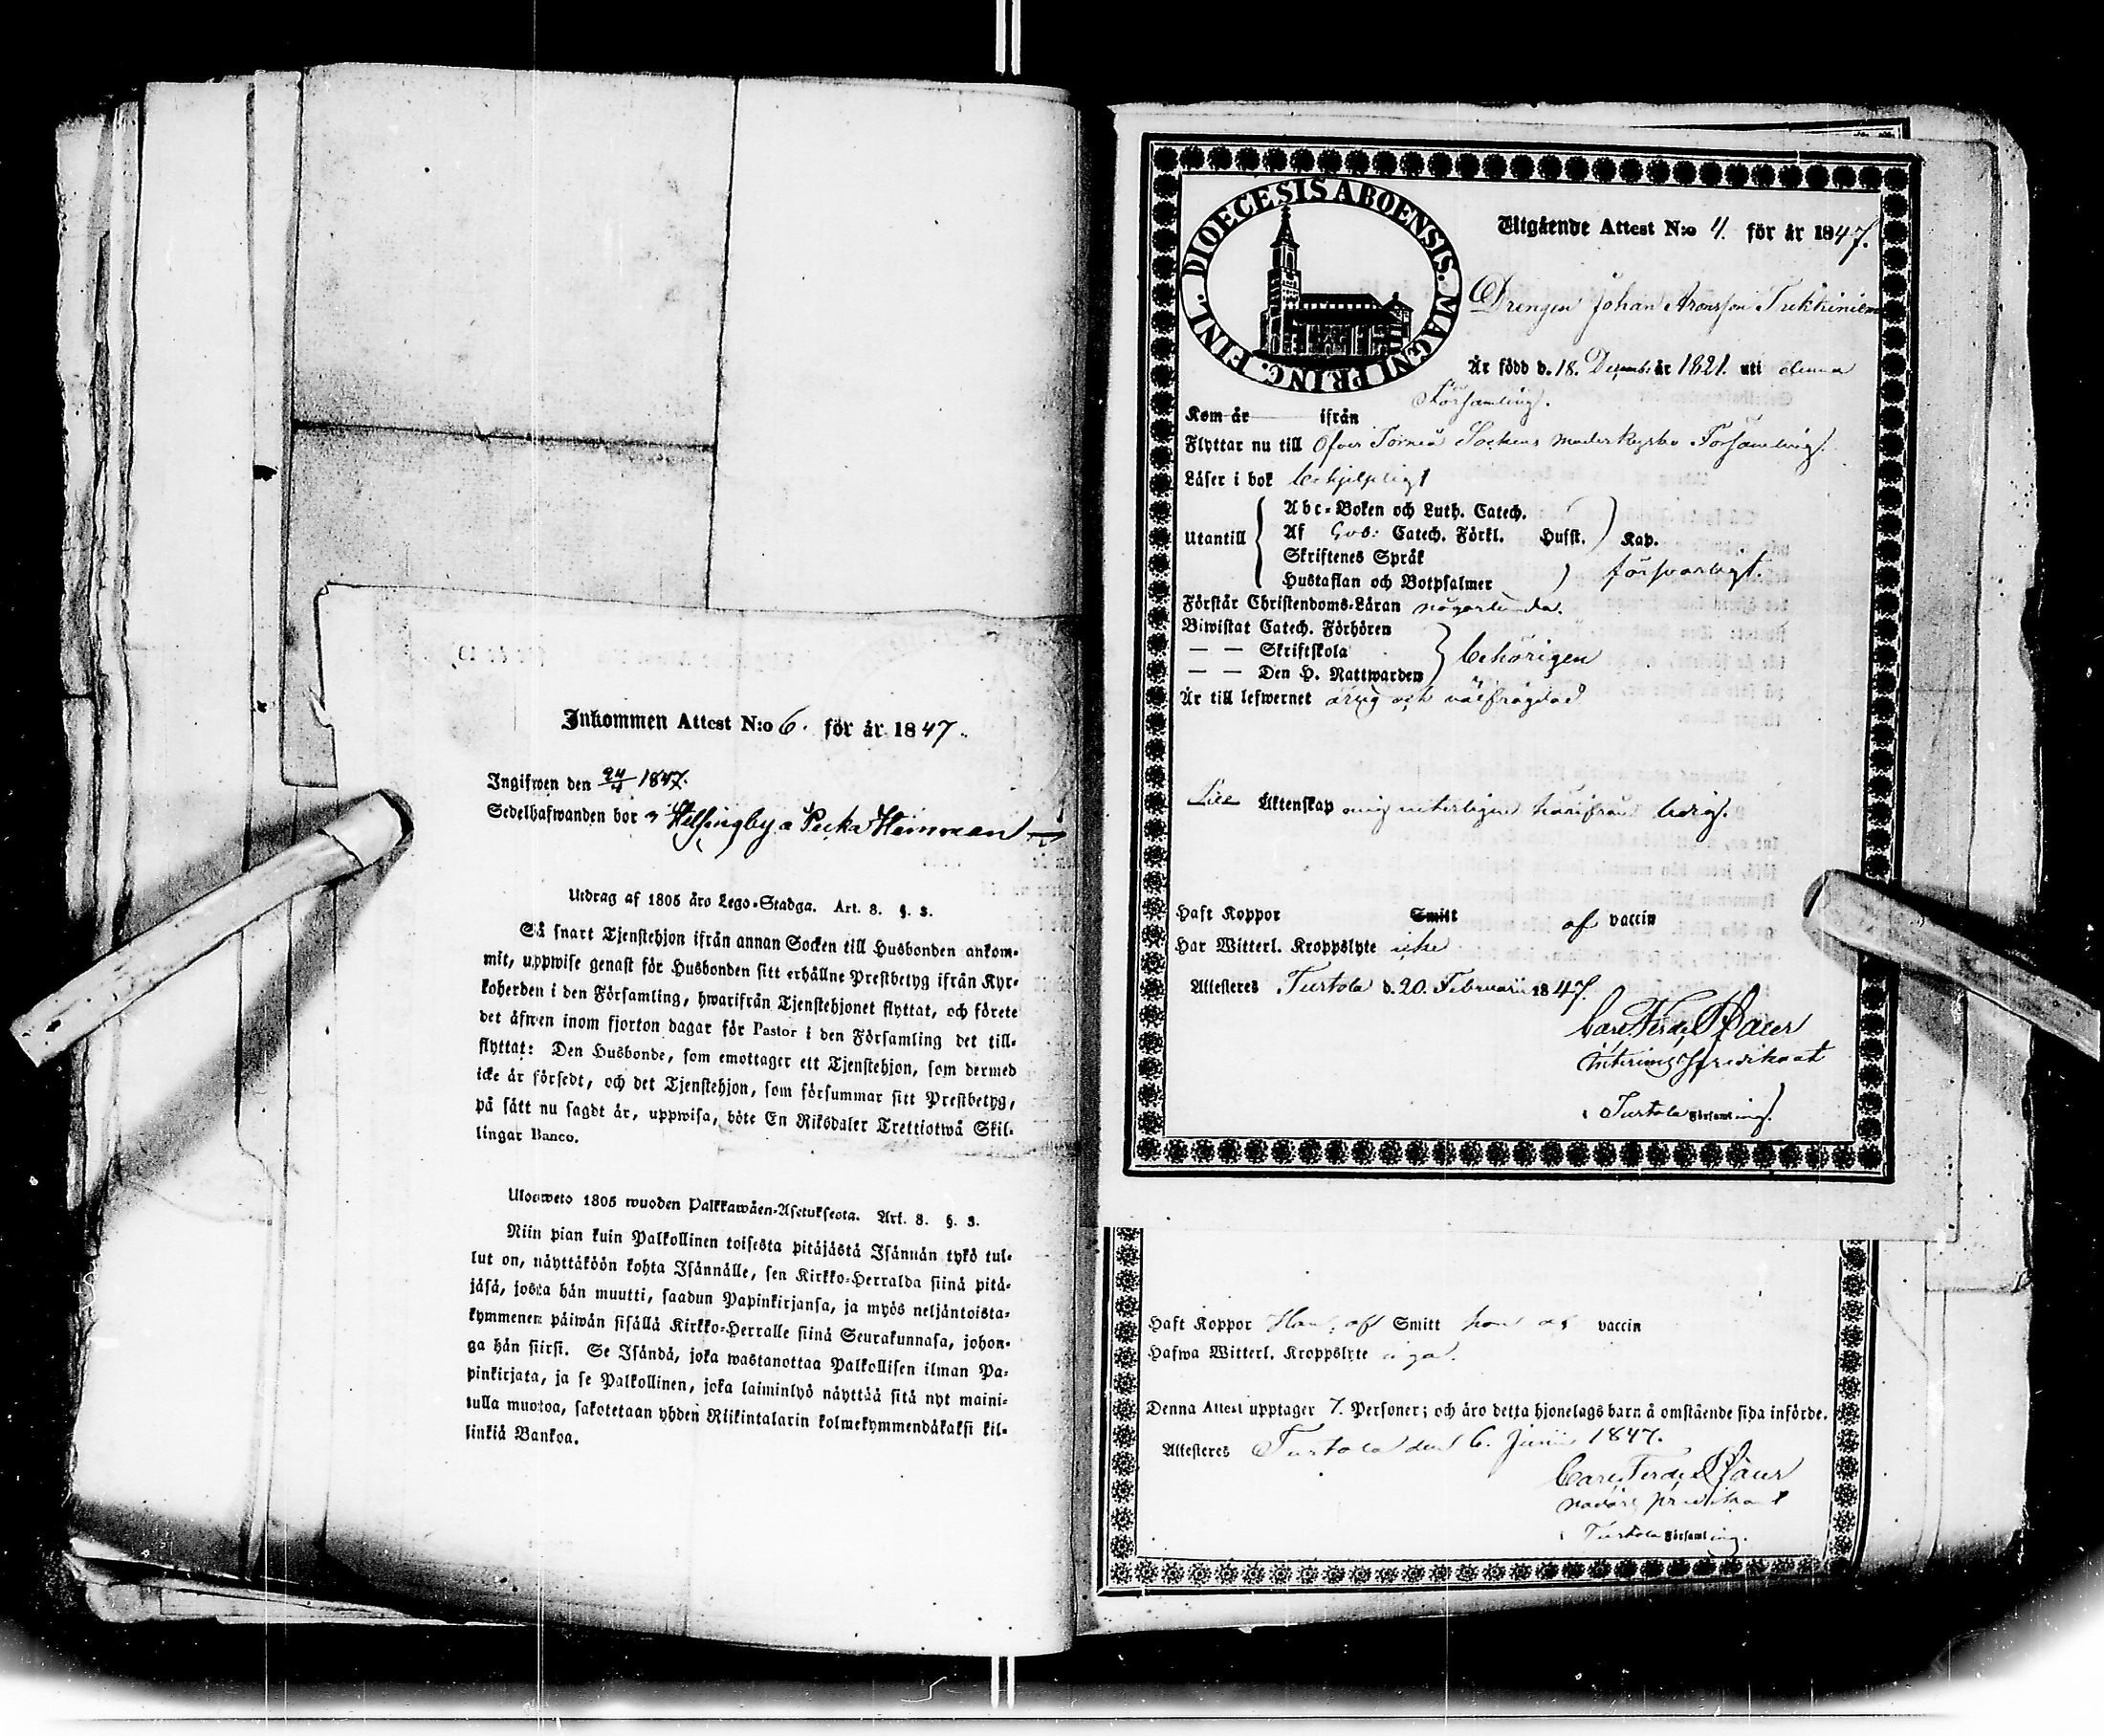 Inkommen Attest N:o 6. för år 1847.
Ingifwen den 24/4 1847.
Sedelhafwanden bor i Helsingby a Pecka Heinman
Utdrag af 1805 års Lego-Stadga. Art. 8. §. 3.
Så snart Tjenstehjon ifrån annan Socken till Husbonden ankom-
mit, uppwise genast för Husbonden sitt erhållne Prestbetyg ifrån Kyr-
koherden i den Församling, hwarifrån Tjenstehjonet flyttat, och förete
det äfwen inom fjorton dagar för Pastor i den Församling det till-
flyttat: Den Husbonde, som emottager ett Tjenstehjon, som dermed
icke är försedt, och det Tjenstehjon, som försummar sitt Prestbetyg,
på sätt nu sagdt är, uppwisa, böte En Riksdaler Trettiotwå Skil-
lingar Banco.
Ulosweto 1805 wuoden Palkkawäen-Asetuksesta. Art. 8. §. 3.
Niin pian kuin Palkollinen toisesta pitäjästä Isännän tykö tul-
lut on, näyttäköön kohta Isännälle, sen Kirkko-Herralda siinä pitä-
jäsä, josta hän muutti, saadun Papinkirjansa, ja myös neljäntoista-
kymmenen päiwän sisällä Kirkko-Herralle siinä Seurakunnasa, johon-
ga hän siirsi. Se Isändä, joka wastanottaa Palkollisen ilman Pa-
pinkirjata, ja se Palkollinen, joka laiminlyö näyttää sitä nyt maini-
tulla muotoa, sakotetaan yhden Riikintalarin kolmekymmendäkaksi kil-
linkiä Bankoa.
DIOECESIS ABOENSIS. MAGNI PRINC. FINL.
Utgående Attest N:o 4. för år 1847.
Drengen Johan Aronsson
Är född d. 18. Decemb. år 1821. uti denna
Församling.
Kom år ifrån
Flyttar nu till Öfver Torneå Sockens moderkyrko Församling.
Läser i bok behjelpligt
Utantill
Abc-Boken och Luth. Catech.
Af Catech. Förkl. Husst. Kap.
Skriftenes Språk försvarligt.
Hustaflan och Botpsalmer
Förstår Christendoms-Läran någorlunda.
Biwistat Catech. Förhören
— — Skriftskola behörigen
— — Den H. Nattwarden
Är till lefwernet ärlig och välfrägdad
Till Äktenskap mig veterligen härifrån ledig.
Haft Koppor Smitt af vaccin
Har Witterl. Kroppslyte icke
Attesteres Turtola d. 20. Februarii 1847.
Carl Ferd.
interims predikant
i Turtola Församling.
Haft Koppor Han, af Smitt hon af vaccin
Hafwa Witterl. Kroppslyte inga.
Denna Attest upptager 7. Personer; och äro detta hjonelags barn å omstående sida införde.
Attesteres Turtola den 6. Junii 1847.
Carl Ferd.
predikant
i Turtola Församling.